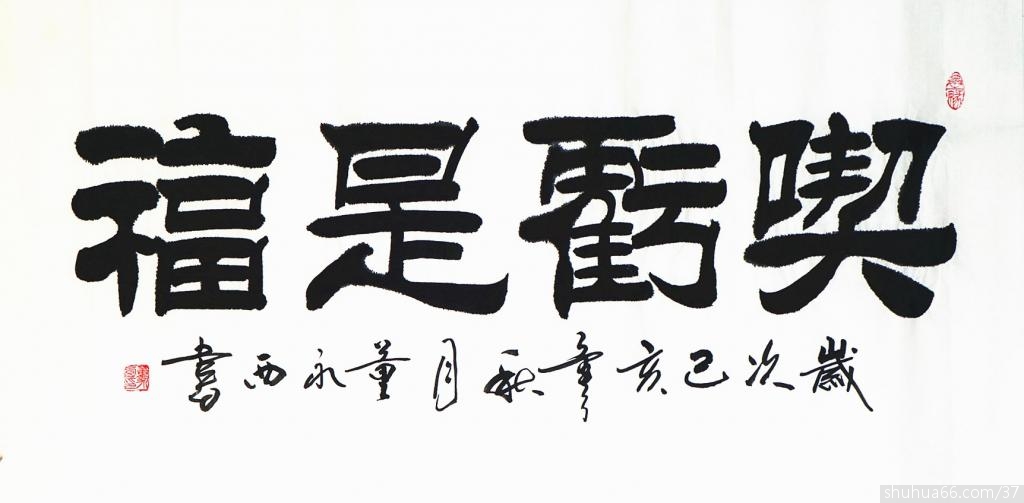 喫虧是福
歲次己亥年秋月董永西書
shuhua66.com/37